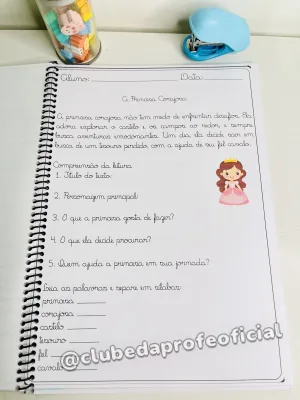 Aluno: Data:
A Princesa Corajosa
A princesa corajosa não tem medo de enfrentar desafios. Ela
adora explorar o castelo e os campos ao redor, e sempre
busca aventuras emocionantes. Um dia, ela decide sair em
busca de um tesouro perdido, com a ajuda de seu fiel cavalo.
Compreensão da leitura
1. Título do texto:
2. Personagem principal:
3. O que a princesa gosta de fazer?
4. O que ela decide procurar?
5. Quem ajuda a princesa em sua jornada?
Leia as palavras e separe em sílabas:
princesa
corajosa
castelo
tesouro
fiel
cavalo
@clubedaprofeoficial